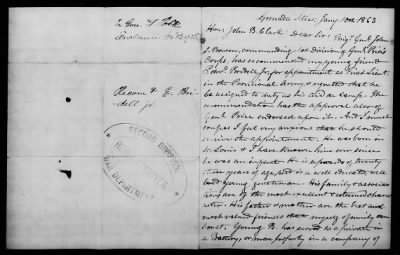 Grenada Miss, Jany 10th 1863
Hon: John B. Clark: Dear Sir: Brig. Genl John
S. Bowen, commanding 1st division Genl Price's
Corps, has recommended my young friend
for appointment as First Lieut.
in the Provisional Army, & requested that he
be assigned to duty as his aid de camp. The
recommendation has the approval also of
Genl. Price endorsed upon it. And I must
confess I feel very anxious that he should
receive the appointment. He was born in
St Louis & I have known him ever since
he was an infant. He is upwards of twenty
three years of age, & is a well educated, well
bred young gentleman. His family & associa-
tions are of the most excellent & refined charac-
ter. His father & mother are the best and
most valued friends that myself & family can
boast. Young B. has served as a private in
a Battery, or more properly in a company of
To Gen. T
RECORD DIVISION
WAR DEPARTMENT